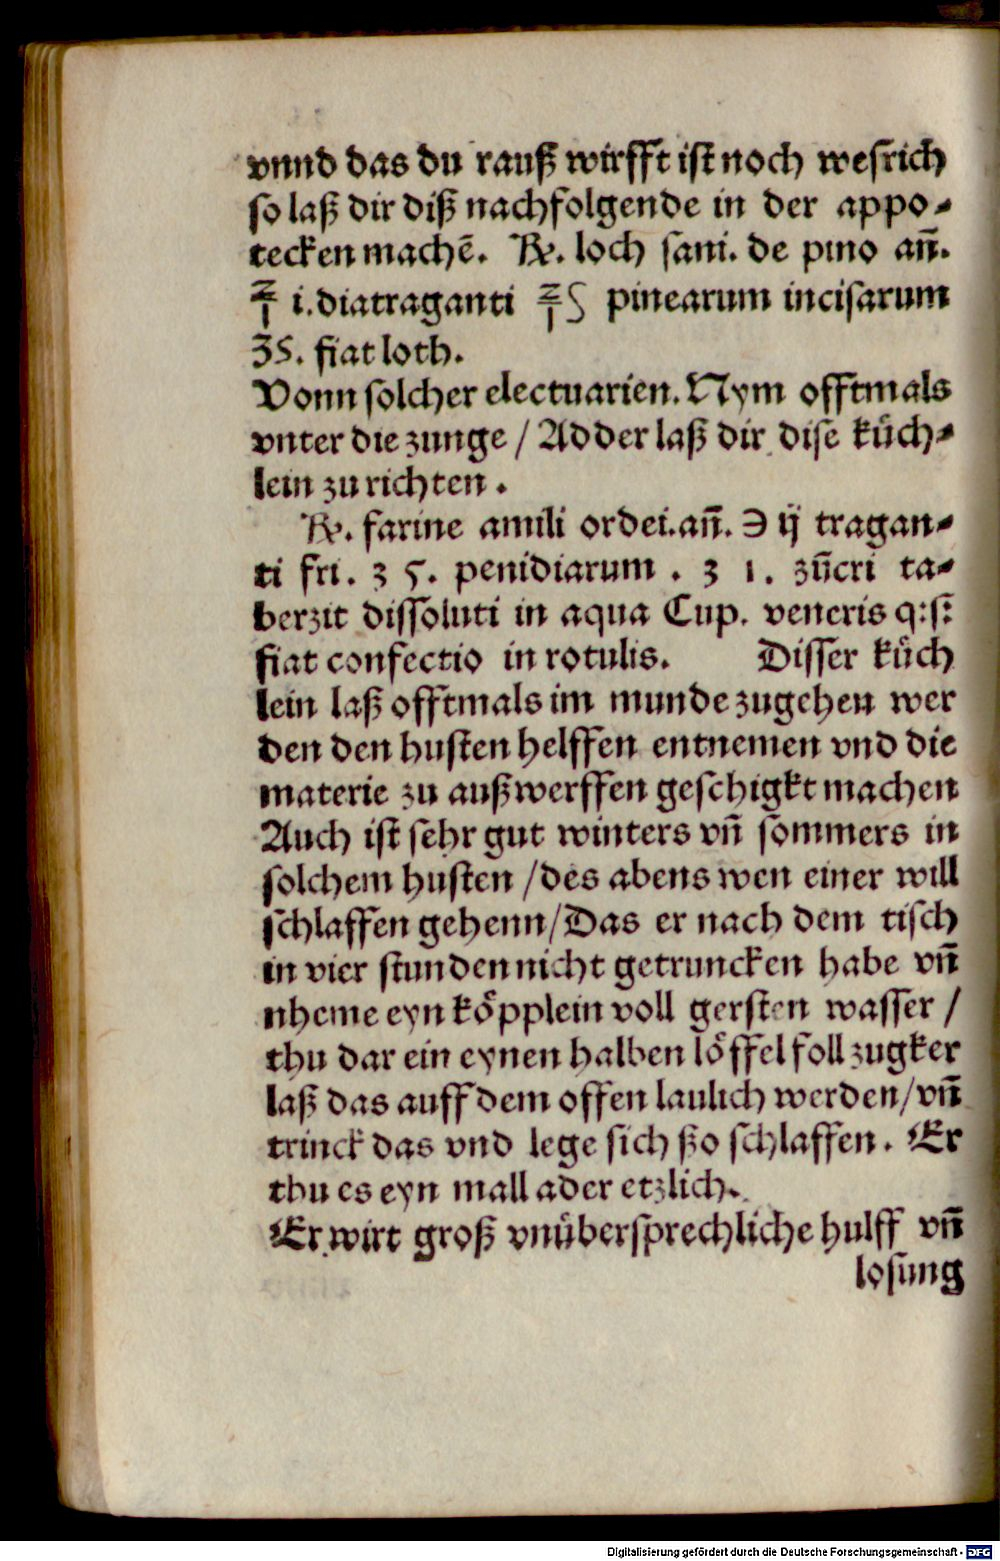 vnnd das du rauß wirfft ist noch wesrich
so laß dir diß nachfolgende in der appo⸗
tecken machē. ℞. loch sani. de pino añ.
℥ i. diatraganti ℥ ʃ pinearum incisarum
ʒs. fiat loth.
Vonn solcher electuarien. Nym offtmals
vnter die zunge / Adder laß dir dise kůch⸗
lein zu richten .
℞. farine amili ordei. añ. ℈ ij tragan⸗
ti fri. ʒ s. penidiarum . ʒ 1. zūcri ta⸗
berzit dissoluti in aqua Cup. veneris q:s:
fiat confectio in rotulis. Disser kůch
lein laß offtmals im munde zugehen wer
den den husten helffen entnemen vnd die
materie zu außwerffen geschigkt machen
Auch ist sehr gut winters vñ sommers in
solchem husten /des abens wen einer will
schlaffen gehenn/Das er nach dem tisch
in vier stunden nicht getruncken habe vñ
nheme eyn kőpplein voll gersten wasser /
thu dar ein eynen halben lőffel foll zugker
laß das auff dem offen laulich werden/vñ
trinck das vnd lege sich ßo schlaffen. Er
thu es eyn mall ader etzlich.
Er wirt groß vnůbersprechliche hulff vñ
losung
Digitalisierung gefördert durch die Deutsche Forschungsgemeinschaft - DFG